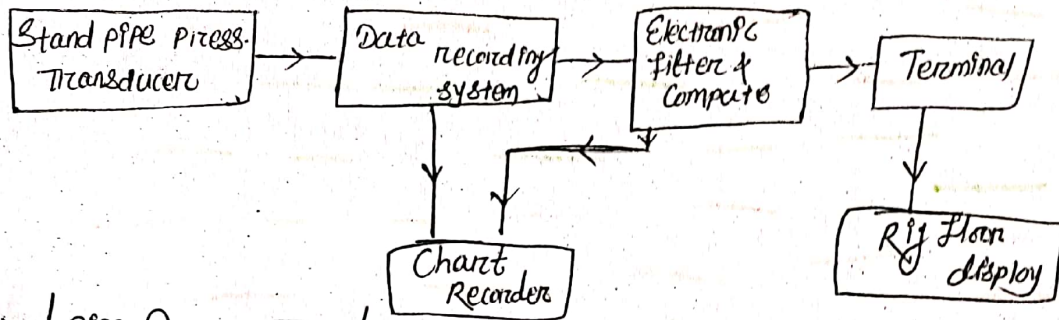 Stand pipe Press.
Transducer
Data
recording
system
Electronic
filter &
Compute
Terminal
Chart
Recorder
Rig floor
display